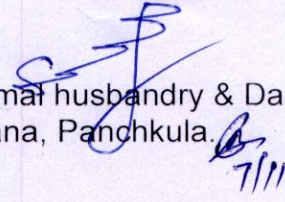 mal husbandry & Da
ana, Panchkula.
7/11